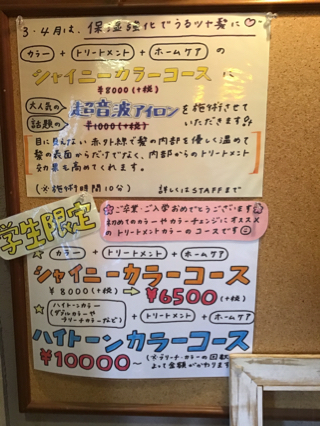 3・4月は、保湿強化でうるツヤ髪に♡
カラー + トリートメント + ホームケア の
シャイニーカラーコース に
¥8000(+税)
大人気の
話題の
超音波アイロン を施術させて
いただきます!!
¥1000(+税)
目に見えない赤外線で髪の内部を優しく温めて
髪の表面からだけでなく、内部からのトリートメント
効果も高めてくれます。
(※施術時間10分) 詳しくはSTAFFまで
学生限定
ご卒業・ご入学おめでとうございます
初めてのカラーやカラーチェンジにオススメ
のトリートメントカラーのコースです
☆ カラー + トリートメント + ホームケア
シャイニーカラーコース
¥8000(+税) → ¥6500(+税)
☆ ハイトーンカラー
(ダブルカラーや
ブリーチカラーなど)
+ トリートメント + ホームケア
ハイトーンカラーコース
¥10000~ (※ブリーチ・カラーの回数に
よって金額がかわります)